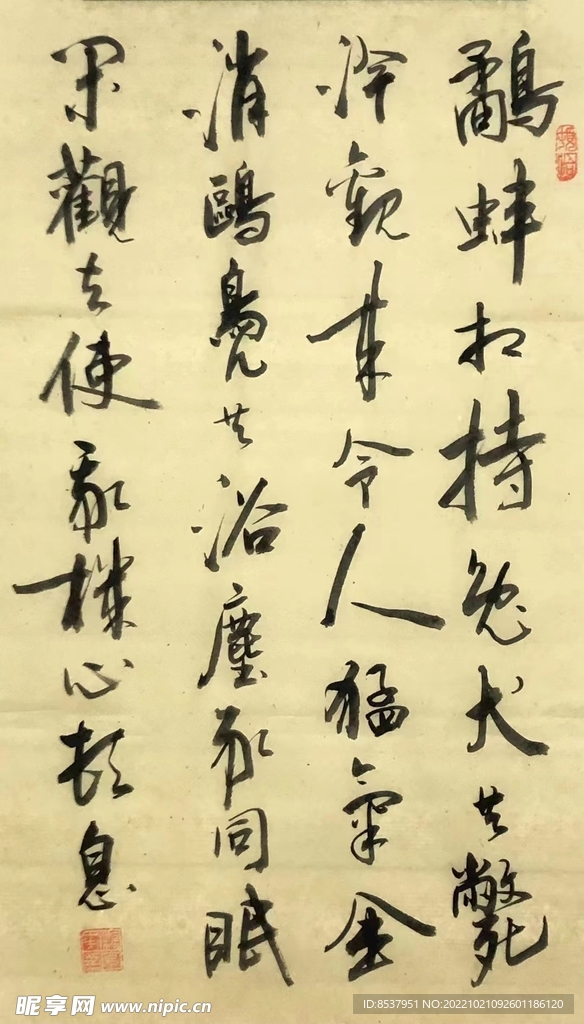 鷸蚌相持兔犬共斃
冷觀來令人猛氣全
消鷗鳧共浴塵豕同眠
閑觀去使我機心頓息
昵享网 www.nipic.cn
ID:8537951 NO:20221021092601186120